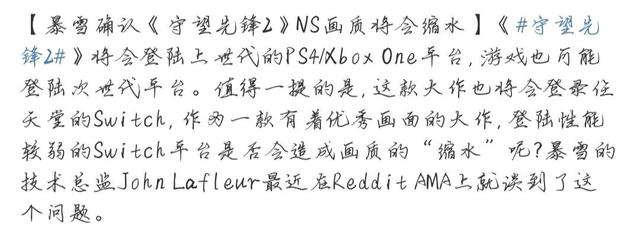 【暴雪确认《守望先锋2》NS画质将会缩水】《#守望先
锋2#》将会登陆上世代的PS4/Xbox One平台,游戏也可能
登陆次世代平台。值得一提的是,这款大作也将会登录任
天堂的Switch,作为一款有着优秀画面的大作,登陆性能
较弱的Switch平台是否会造成画质的“缩水”呢?暴雪的
技术总监John Lafleur最近在Reddit AMA上就谈到了这
个问题。